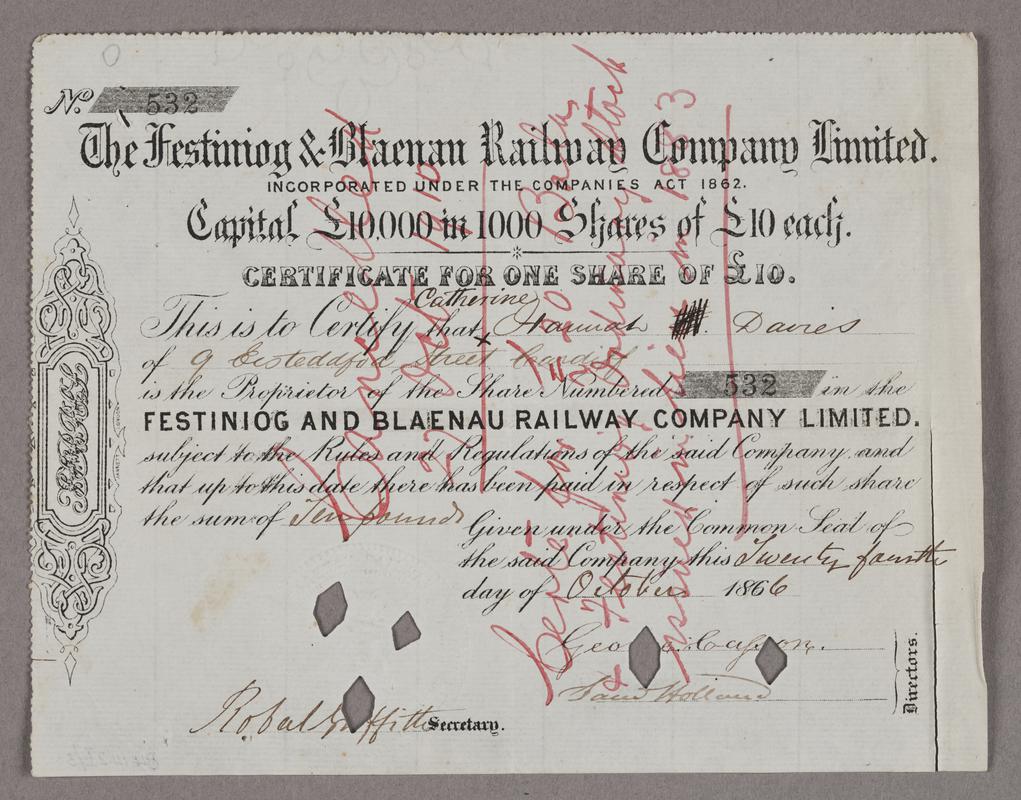 No 532
The Festiniog & Blaenau Railway Company Limited.
INCORPORATED UNDER THE COMPANIES ACT 1862.
Capital £10,000 in 1000 Shares of £10 each.
CERTIFICATE FOR ONE SHARE OF £10.
Catherine
This is to Certify that Hannah Davies
of 9 Eisteddfod Street Cardiff
is the Proprietor of the Share Numbered 532 in the
FESTINIOG AND BLAENAU RAILWAY COMPANY LIMITED.
subject to the Rules and Regulations of the said Company and
that up to this date there has been paid in respect of such share
the sum of Ten pounds
Given under the Common Seal of
the said Company this Twenty fourth
day of October 1866
George Casson.
Saml Holland
Directors.
Secretary.
Cancelled
27 Oct 1910
Certe for £ 20 Balas
& Festiniog Ordinary Stock
issued in lieu in 1883